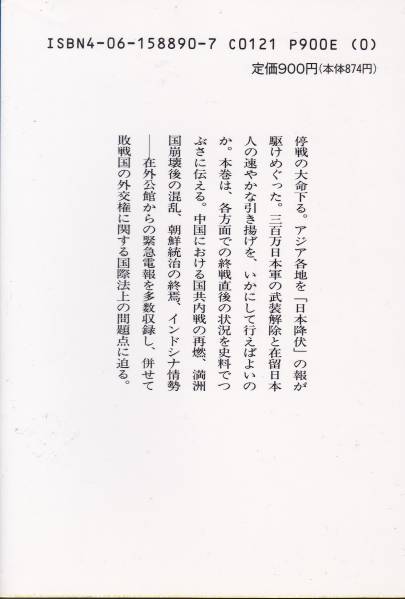 ISBN4-06-158890-7 C0121 P900E (0)
定価900円(本体874円)
停戦の大命下る。アジア各地を「日本降伏」の報が
駆けめぐった。三百万日本軍の武装解除と在留日本
人の速やかな引き揚げを、いかにして行えばよいの
か。本巻は、各方面での終戦直後の状況を史料でつ
ぶさに伝える。中国における国共内戦の再燃、満洲
国崩壊後の混乱、朝鮮統治の終焉、インドシナ情勢
──在外公館からの緊急電報を多数収録し、併せて
敗戦国の外交権に関する国際法上の問題点に迫る。